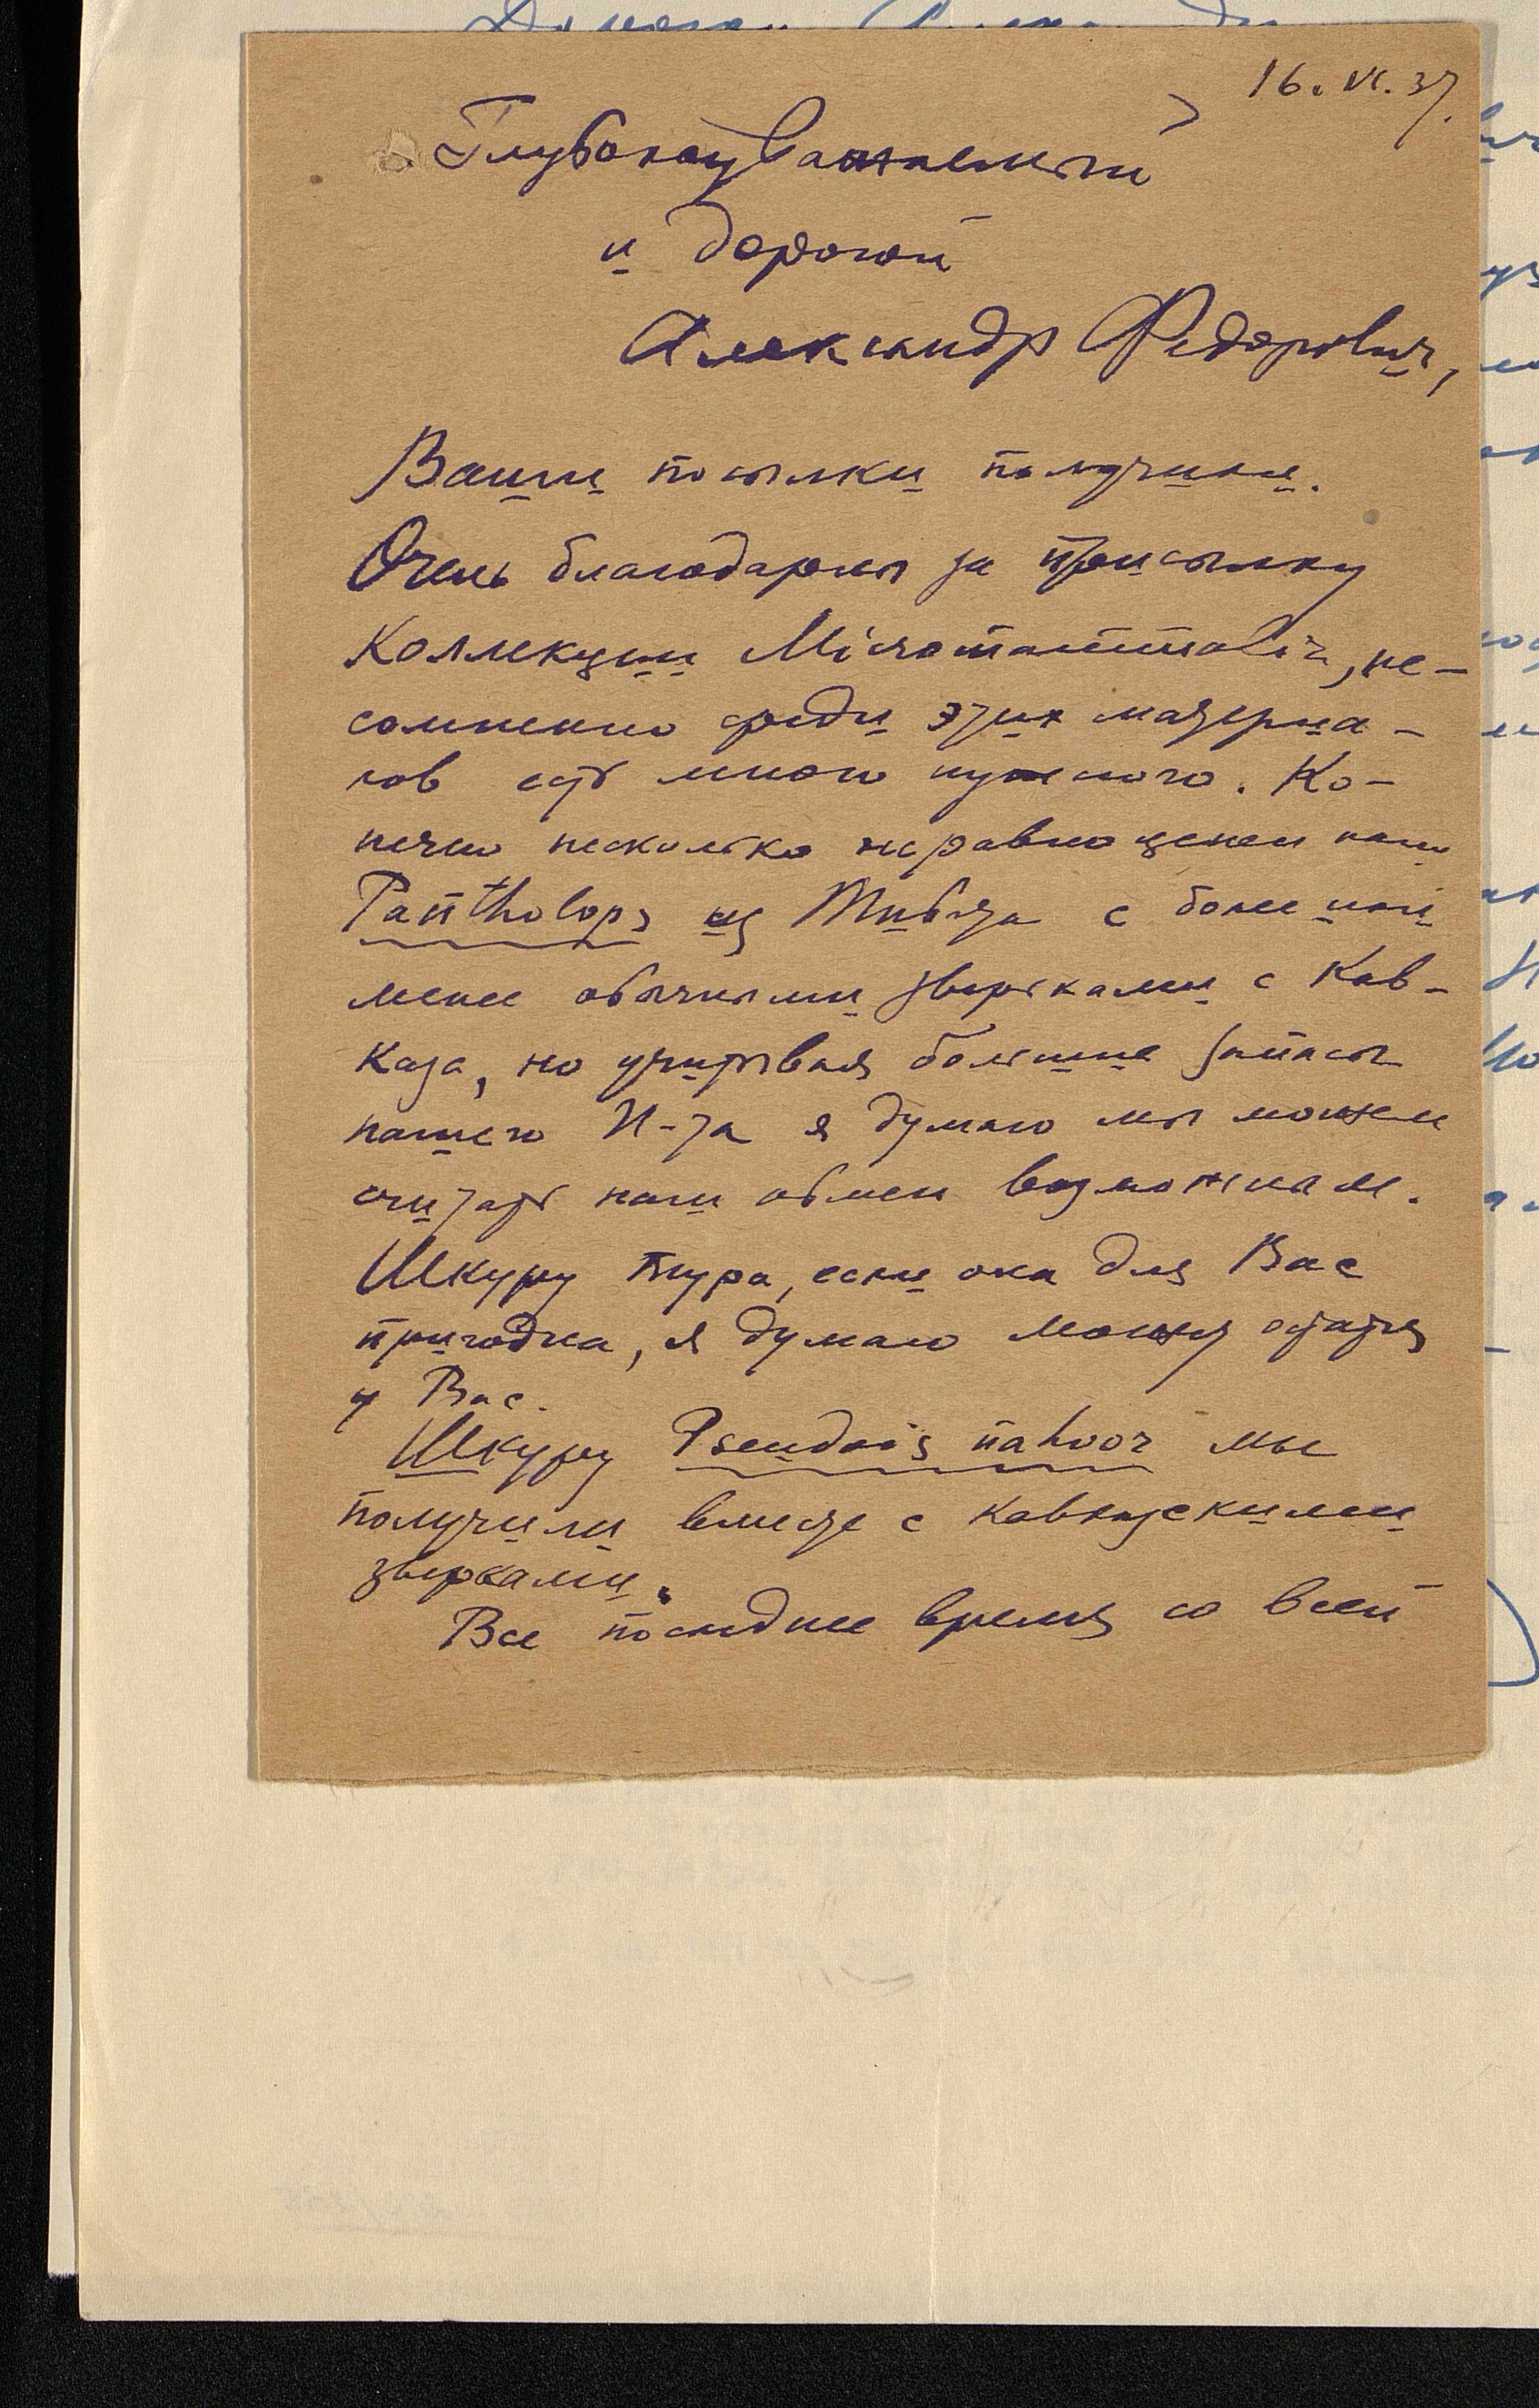 16. VI. 37.
Глубокоуважаемый
и дорогой
Александр Федорович,
Ваши посылки получили.
Очень благодарны за присылку
Коллекции Micromammalia, не-
сомненно среди этих материа-
лов есть много нужного. Ко-
нечно несколько неравноценен наш
Pantholops из Тибета с более или
менее обычными зверьками с Кав-
каза, но учитывая большие запасы
нашего И-та я думаю мы можем
считать наш обмен возможным.
Шкуру тура, если она для Вас
пригодна, я думаю может остаться
у Вас.
Шкуру Pseudois nahoor мы
получили вместе с Кавказскими
зверками.
Все последнее время со всей